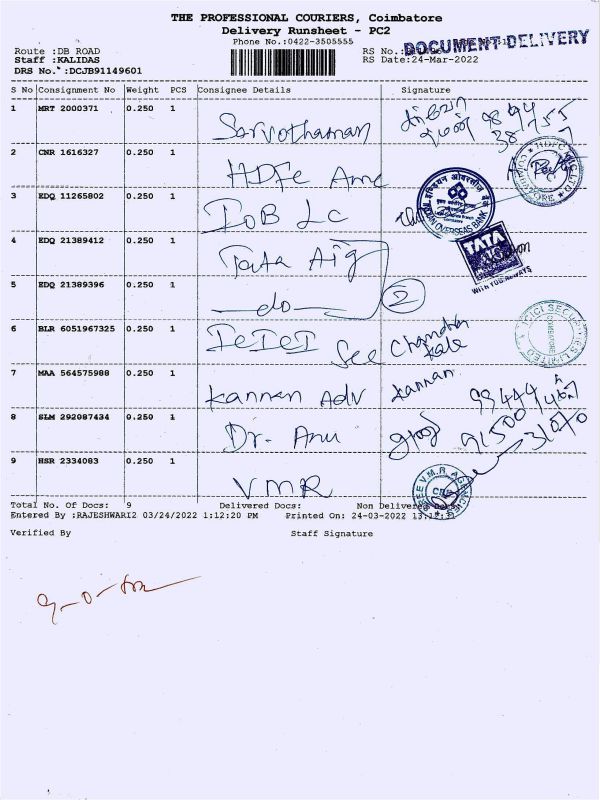 THE PROFESSIONAL COURIERS, Coimbatore
Delivery Runsheet - PC2
Phone No.:0422-3505555
DOCUMENT DELIVERY
Route :DB ROAD RS No.:
Staff :KALIDAS RS Date:24-Mar-2022
DRS No. :DCJB91149601
S No Consignment No Weight PCS Consignee Details Signature
1 MRT 2000371 0.250 1 Sarvothaman
2 CNR 1616327 0.250 1 HDFC Amc
3 EDQ 11265802 0.250 1 IOB LC
INDIAN OVERSEAS BANK
4 EDQ 21389412 0.250 1 Tata Aig
TATA
AIG
WITH YOU ALWAYS
5 EDQ 21389396 0.250 1 do 2
6 BLR 6051967325 0.250 1 ICICI Sec Chandra Kala
ICICI SECURITIES LIMITED
COIMBATORE
7 MAA 564575988 0.250 1 Kannan Adv Kannan
8 SLM 292087434 0.250 1 Dr. Anu 91500 31070
9 HSR 2334083 0.250 1 VMR
SREE V.M.R. AGENCIES
Total No. Of Docs: 9 Delivered Docs: Non Delivered
Entered By :RAJESHWARI2 03/24/2022 1:12:20 PM Printed On: 24-03-2022
Verified By Staff Signature